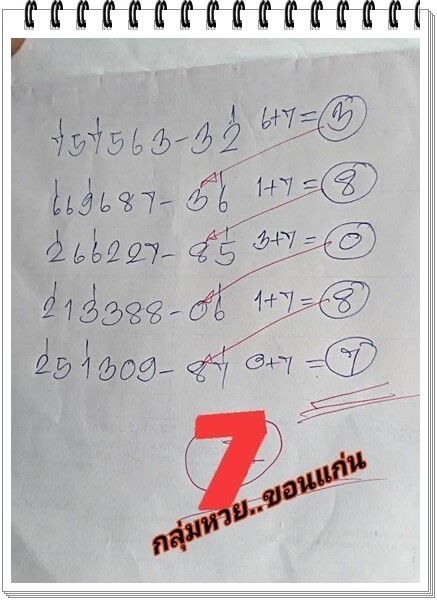 757563-32 6+7=3
669687-36 1+7=8
266227-85 3+7=0
213388-06 1+7=8
251309-87 0+7=7
7
กลุ่มหวย..ขอนแก่น